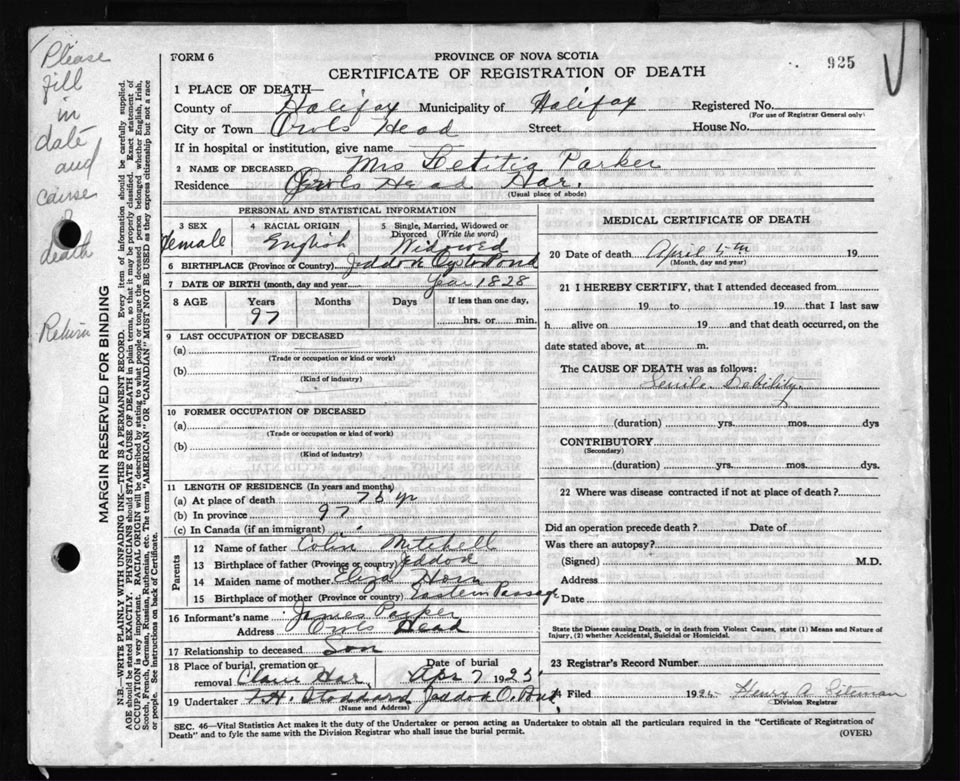 Please
fill
in
date
and
cause
of
death
Return
MARGIN RESERVED FOR BINDING
N.B.—WRITE PLAINLY WITH UNFADING INK—THIS IS A PERMANENT RECORD. Every item of information should be carefully supplied.
AGE should be stated EXACTLY. PHYSICIANS should STATE CAUSE OF DEATH in plain terms, so that it may be properly classified. Exact statement of
OCCUPATION is very important. RACIAL ORIGIN will be described by stating to what people or tongue the deceased person belonged whether English, Irish,
Scotch, French, German, Russian, Ruthenian, etc. The terms "AMERICAN" OR "CANADIAN" MUST NOT BE USED as they express citizenship but not a race
or people. See instructions on back of Certificate.
FORM 6
PROVINCE OF NOVA SCOTIA
925
CERTIFICATE OF REGISTRATION OF DEATH
1 PLACE OF DEATH—
County of Halifax Municipality of Halifax Registered No.
(For use of Registrar General only)
City or Town Owls Head Street House No.
If in hospital or institution, give name
2 NAME OF DECEASED Mrs Letitia Parker
Residence Owls Head Har.
(Usual place of abode)
PERSONAL AND STATISTICAL INFORMATION
3 SEX 4 RACIAL ORIGIN 5 Single, Married, Widowed or
Divorced (Write the word)
Female English Widowed
6 BIRTHPLACE (Province or Country) Jeddore Oyster Pond
7 DATE OF BIRTH (month, day and year) Year 1828
8 AGE Years Months Days If less than one day,
97 hrs. or min.
9 LAST OCCUPATION OF DECEASED
(a)
(Trade or occupation or kind or work)
(b)
(Kind of industry)
10 FORMER OCCUPATION OF DECEASED
(a)
(Trade or occupation or kind of work)
(b)
(Kind of industry)
11 LENGTH OF RESIDENCE (In years and months)
(a) At place of death 75 yr
(b) In province 97
(c) In Canada (if an immigrant)
Parents
12 Name of father Colin Mitchell
13 Birthplace of father (Province or country) Jeddore
14 Maiden name of mother Eliza Horn
15 Birthplace of mother (Province or country) Eastern Passage
16 Informant's name James Parker
Address Owls Head
17 Relationship to deceased Son
18 Place of burial, cremation or Date of burial
removal Clam Har. Apr 7 1925
19 Undertaker Stoddard Jeddore O. Pond
(Name and Address)
MEDICAL CERTIFICATE OF DEATH
20 Date of death April 5th 19
(Month, day and year)
21 I HEREBY CERTIFY, that I attended deceased from
19 to 19 that I last saw
h alive on 19 and that death occurred, on the
date stated above, at m.
The CAUSE OF DEATH was as follows:
Senile Debility.
(duration) yrs. mos. dys
CONTRIBUTORY
(Secondary)
(duration) yrs. mos. dys.
22 Where was disease contracted if not at place of death?
Did an operation precede death? Date of
Was there an autopsy?
(Signed) M.D.
Address
Date
State the Disease causing Death, or in death from Violent Causes, state (1) Means and Nature of
Injury, (2) whether Accidental, Suicidal or Homicidal.
23 Registrar's Record Number
Filed 1925 Henry A. Siteman
Division Registrar
SEC. 46—Vital Statistics Act makes it the duty of the Undertaker or person acting as Undertaker to obtain all the particulars required in the "Certificate of Registration of
Death" and to fyle the same with the Division Registrar who shall issue the burial permit.
(OVER)